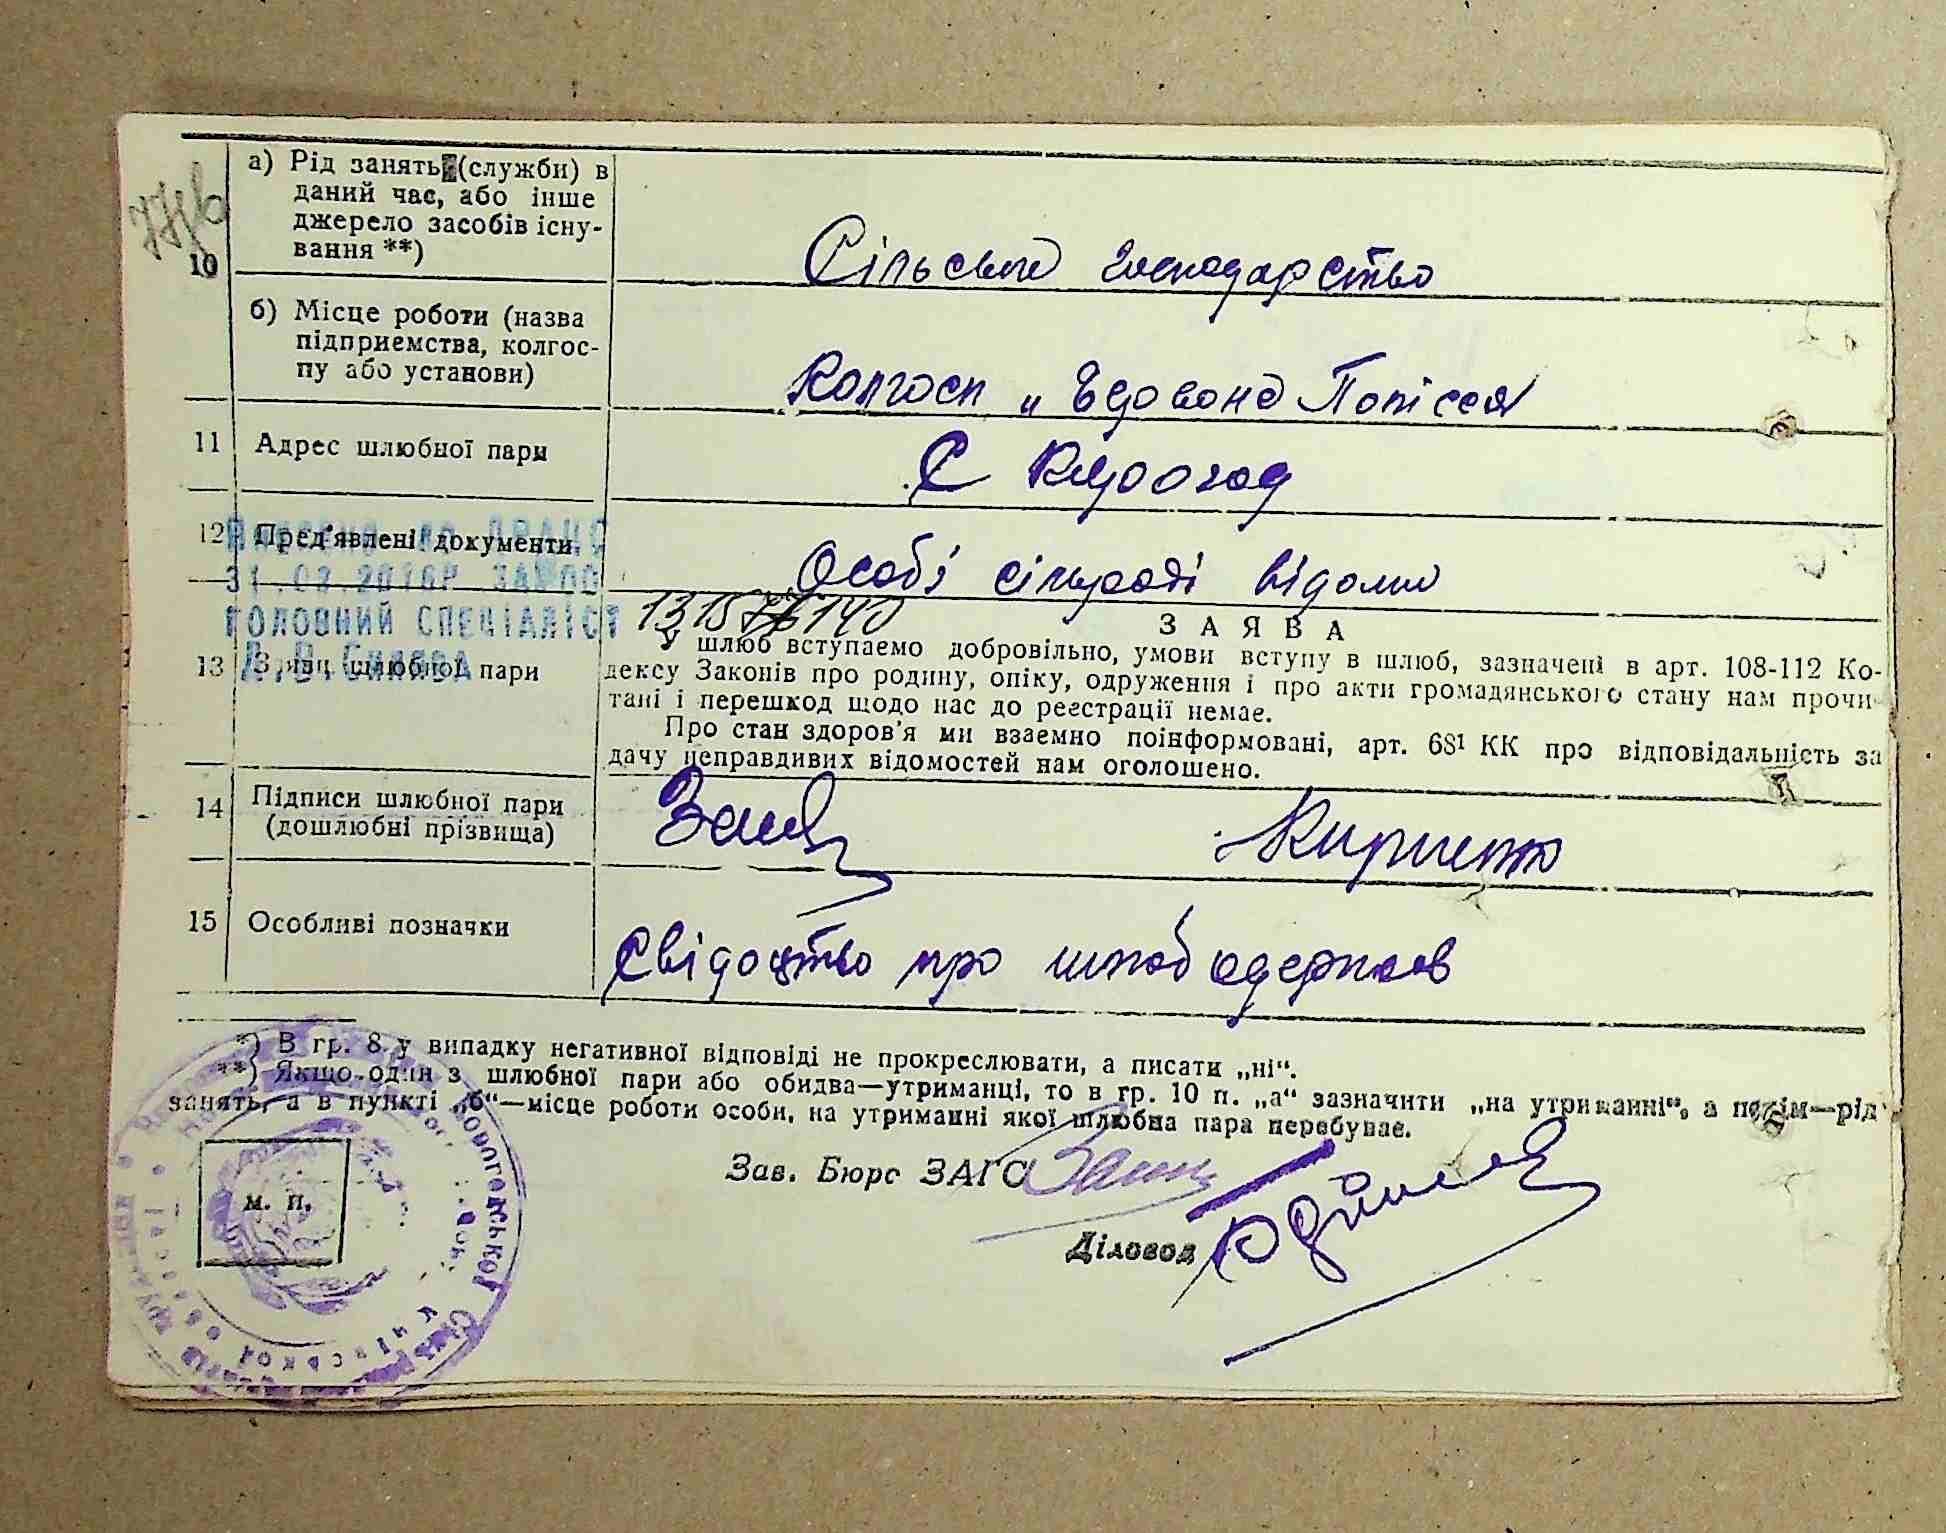 а) Рід занять (служби) в
даний час, або інше
джерело засобів існу-
вання **)
10
Сільське господарство
б) Місце роботи (назва
підприємства, колгос-
пу або установи)
Колгосп „ Полісся
11 Адрес шлюбної пари
С
12 Пред'явлені документи
Особі сільраді відомі
31.03.2016Р
ГОЛОВНИЙ СПЕЦІАЛІСТ
13 Заява шлюбної пари
ЗАЯВА
У шлюб вступаємо добровільно, умови вступу в шлюб, зазначені в арт. 108-112 Ко-
дексу Законів про родину, опіку, одруження і про акти громадянського стану нам прочи-
тані і перешкод щодо нас до реєстрації немає.
Про стан здоров'я ми взаємно поінформовані, арт. 68¹ КК про відповідальність за
дачу неправдивих відомостей нам оголошено.
14 Підписи шлюбної пари
(дошлюбні прізвища)
15 Особливі позначки
Свідоцтво про шлюб одержав
*) В гр. 8 у випадку негативної відповіді не прокреслювати, а писати „ні“.
**) Якщо один з шлюбної пари або обидва—утриманці, то в гр. 10 п. „а“ зазначити „на утриманні“, а потім—рід
занять, а в пункті „б“—місце роботи особи, на утриманні якої шлюбна пара перебуває.
Зав. Бюро ЗАГС
Діловод
м. п.